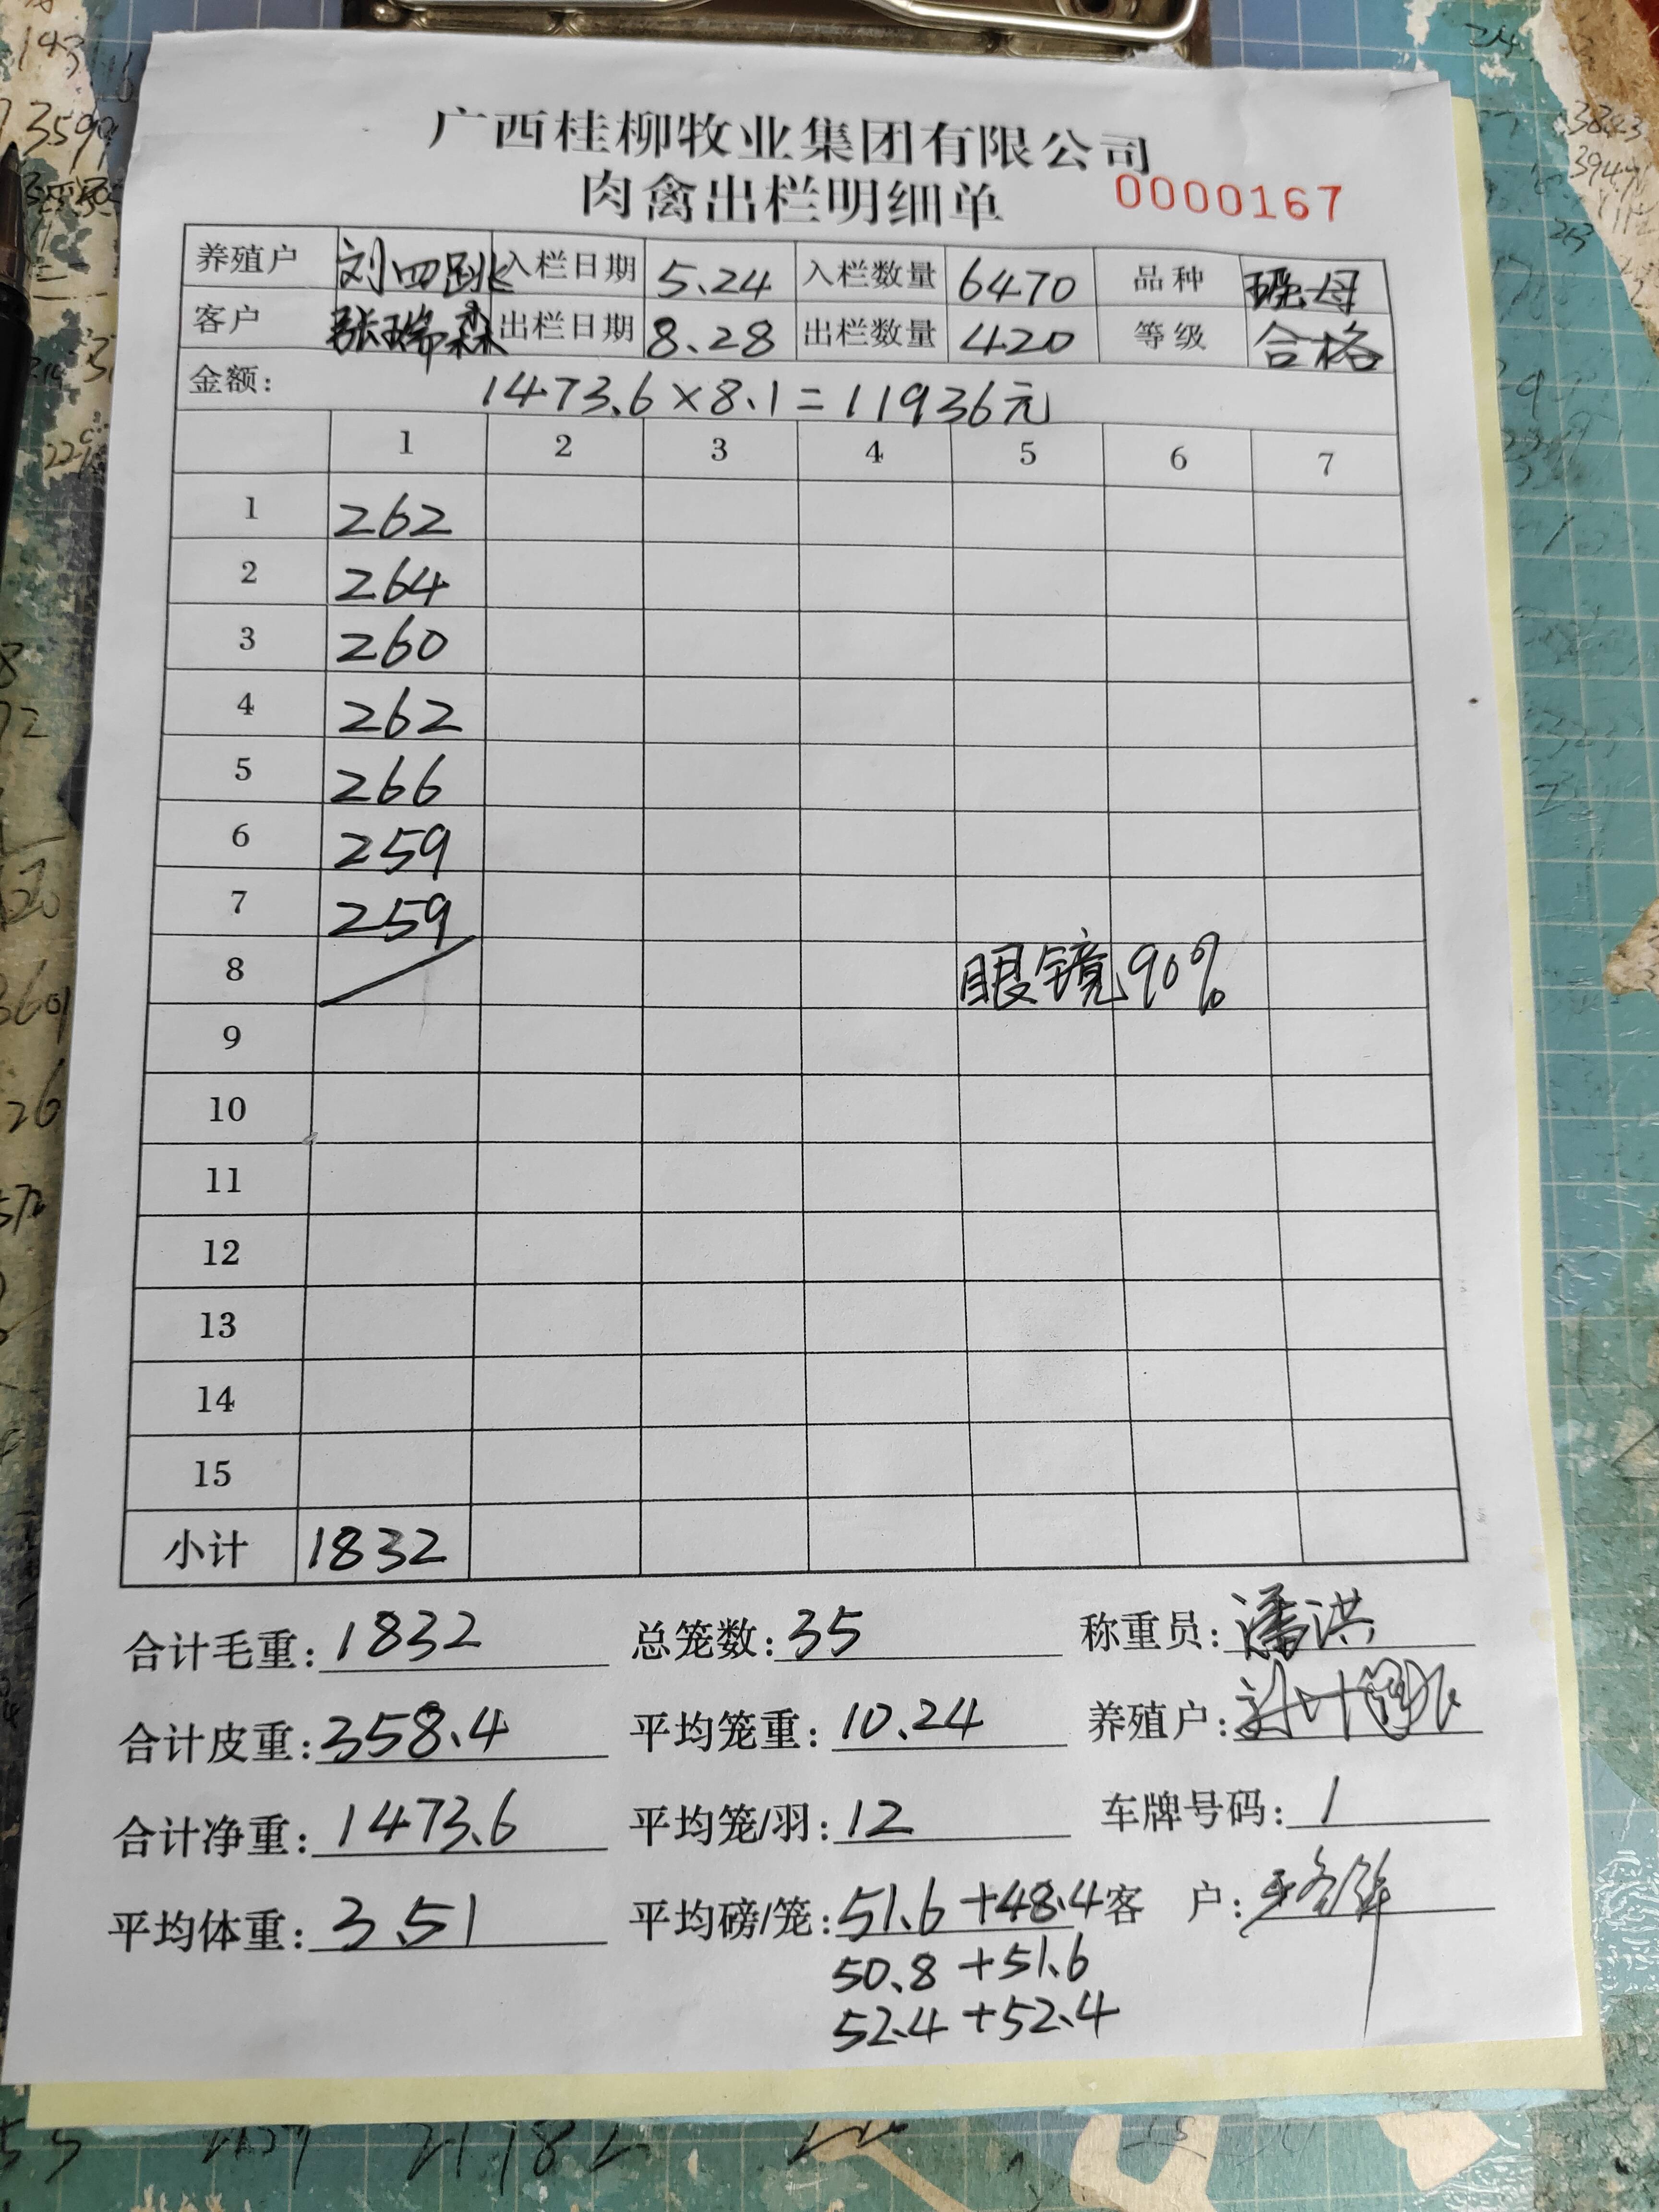 广西桂柳牧业集团有限公司
肉禽出栏明细单 0000167
养殖户 刘四跳 入栏日期 5.24 入栏数量 6470 品种 母
客户 张瑞森 出栏日期 8.28 出栏数量 420 等级 合格
金额: 1473.6×8.1=11936元
1 2 3 4 5 6 7
1 262
2 264
3 260
4 262
5 266
6 259
7 259
8 眼镜90%
9
10
11
12
13
14
15
小计 1832
合计毛重: 1832 总笼数: 35 称重员: 潘洪
合计皮重: 358.4 平均笼重: 10.24 养殖户:
合计净重: 1473.6 平均笼/羽: 12 车牌号码: 1
平均体重: 3.51 平均磅/笼: 51.6+48.4 客 户:
50.8+51.6
52.4+52.4